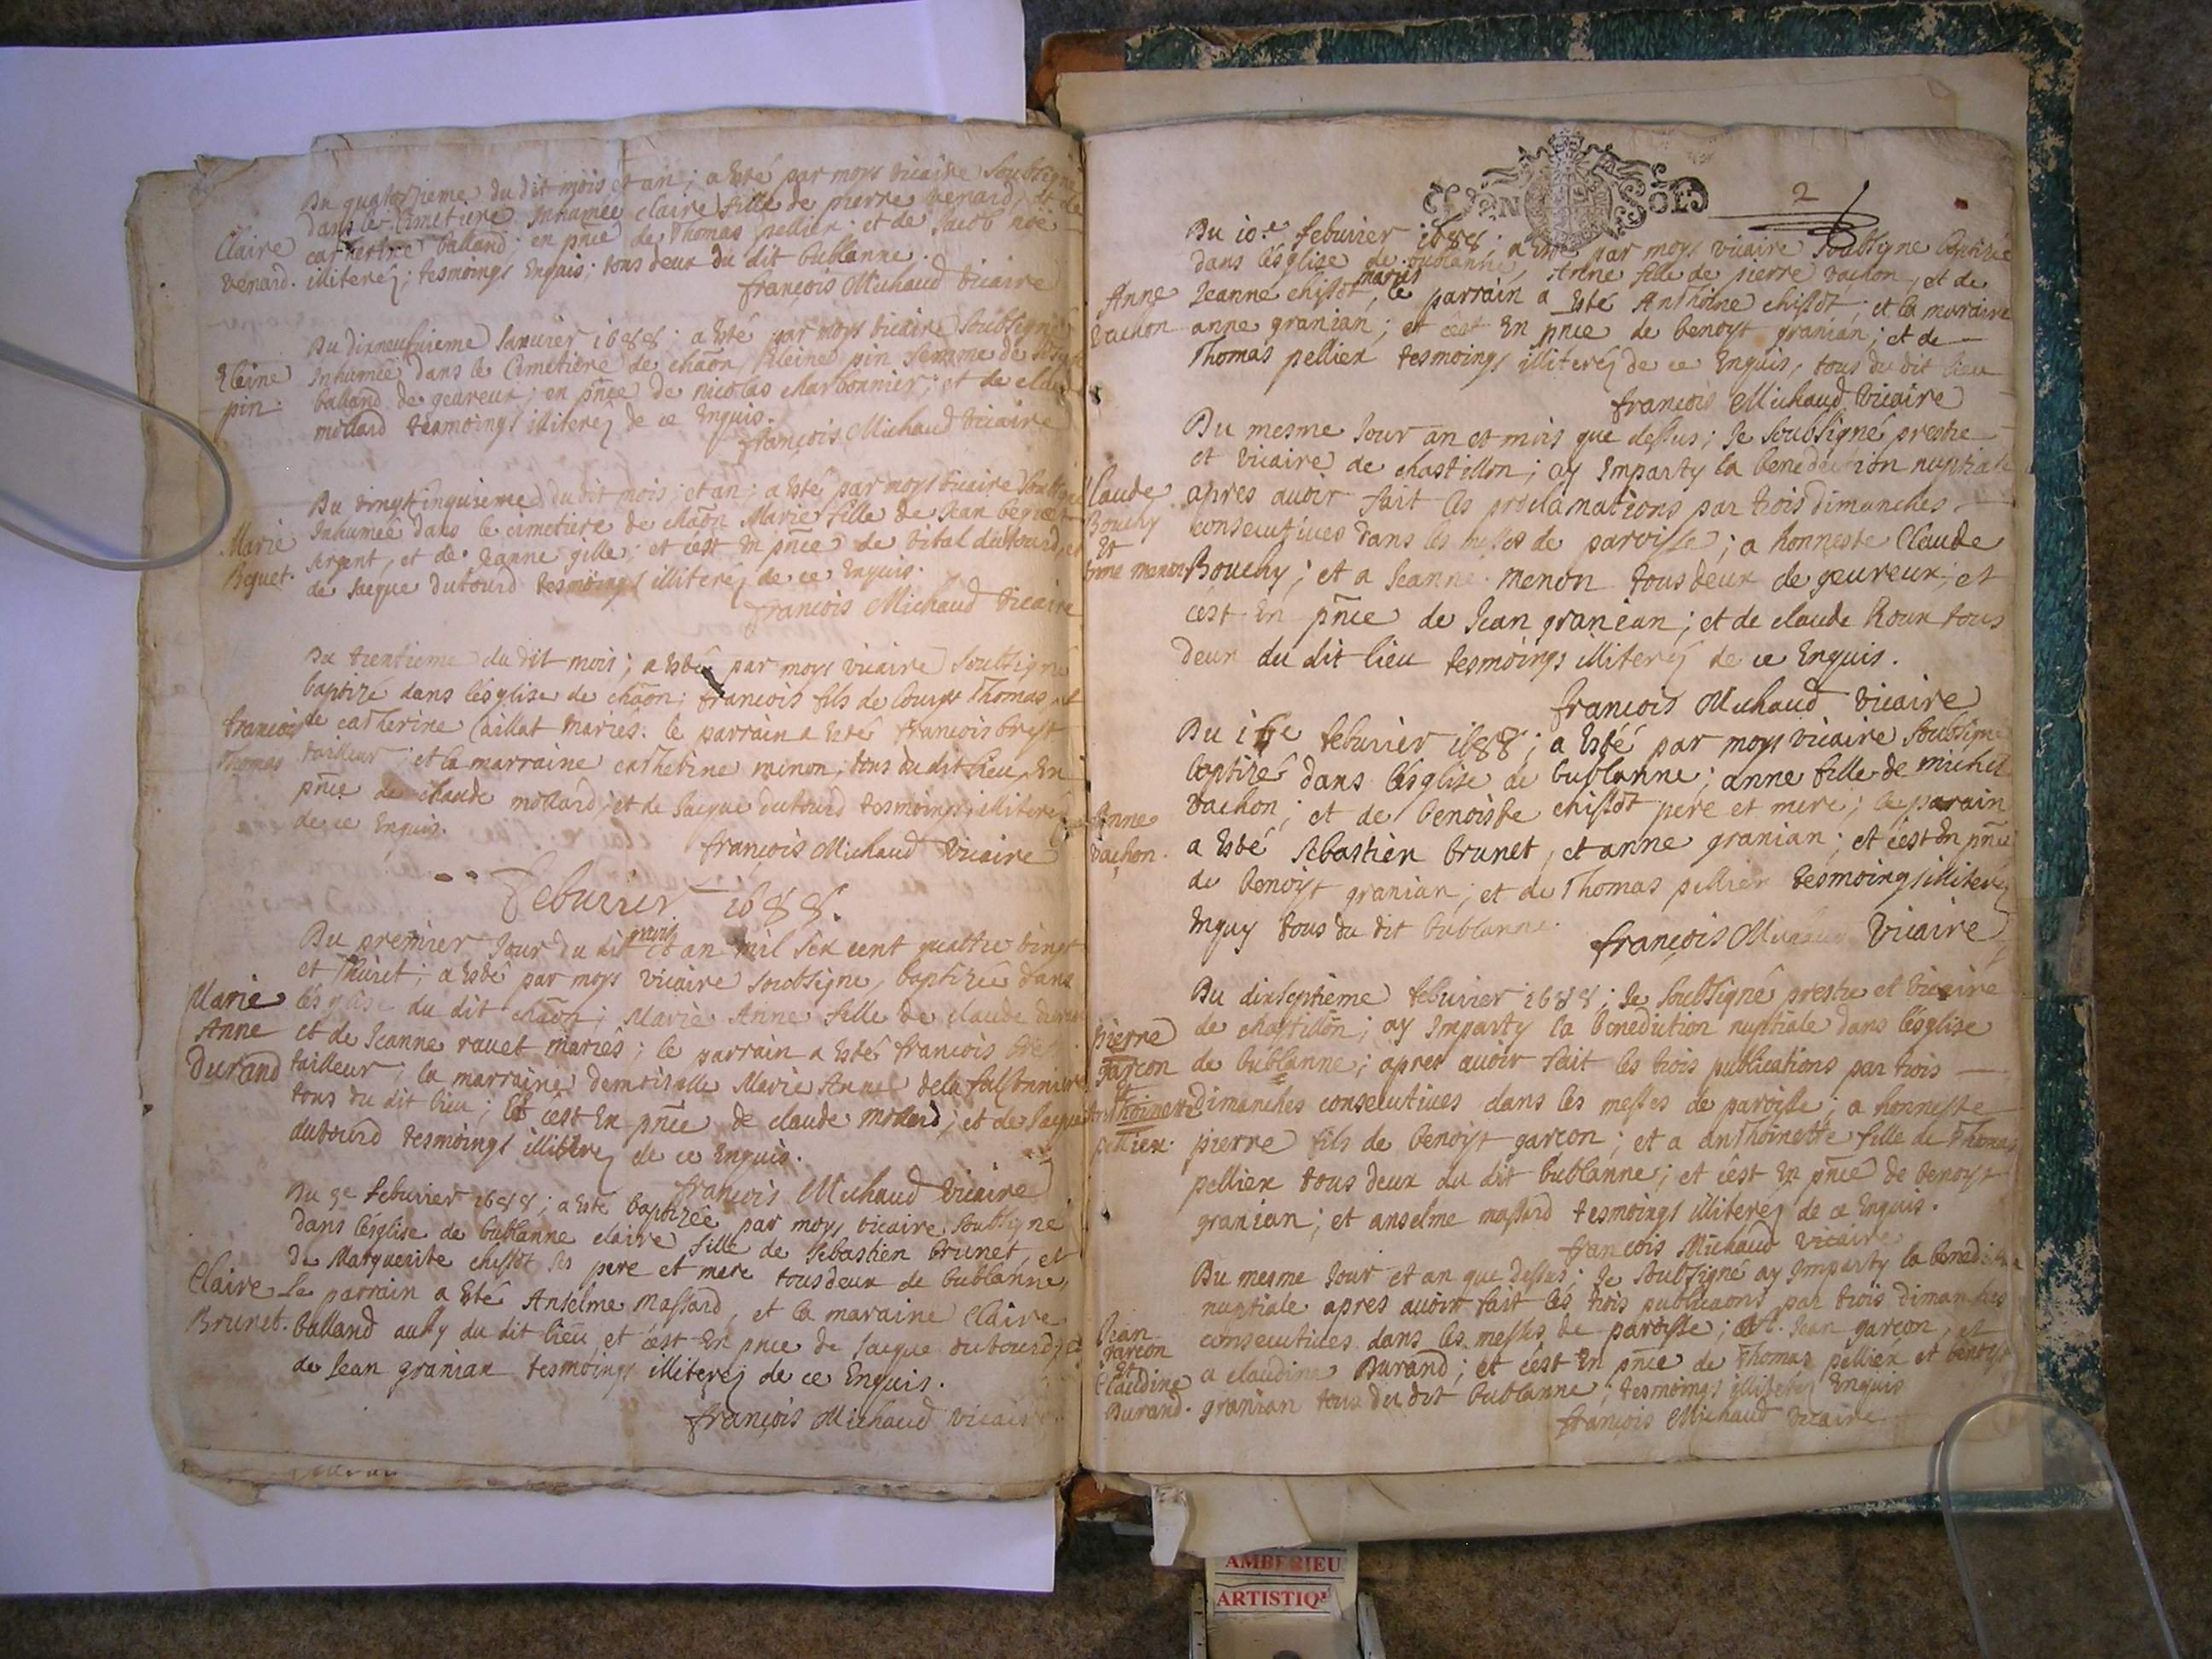 Du quatorzieme du dit mois et an; a esté par moys vicaire soubsigné
dans le Cimetiere Inhumée claire fille de pierre venard, et de
Claire catherine balland; en pñce de Thomas pellier; et de Jacob
venard. illiterez; tesmoings enquis; tous deux du dit bublanne.
françois Michaud vicaire
Du dixneufuieme Januier 1688; a esté par moys vicaire soubsigné
Inhumée dans le Cimetiere de chãon, Eleine pin femme de
Eleine balland de geureux; en pñce de nicolas charbonnier; et de claude
pin. mollard tesmoings illiterez de ce enquis.
françois Michaud vicaire
Du vingtcinquieme du dit mois et an; a esté par moys vicaire soubsigné
Inhumée dans le cimetiere de chãon Marie fille de Jean bequet
Marie sergent, et de Jeanne gille; et c'est en pñce de vital dutourd, et
Bequet. de Jacque dutourd tesmoings illiterez de ce enquis.
françois Michaud vicaire
Du trentieme du dit mois; a esté par moys vicaire soubsigné
baptizé dans l'esglise de chãon; françois fils de Thomas et
françois de catherine caillat mariés: le parrain a esté françois
Thomas tailleur; et la marraine catherine minon; tous du dit lieu, En
pñce de claude mollard; et de Jacque dutourd tesmoings illiterez
de ce enquis.
françois Michaud vicaire
Feburier 1688.
Du premier Jour du dit mois et an mil six cent quattre vingt
et huict; a esté par moys vicaire soubsigné, baptizée dans
Marie l'esglise du dit chãon; Marie Anne fille de claude durand
Anne et de Jeanne rauet mariés; le parrain a esté françois
Durand tailleur; la marraine demoiselle Marie Anne dela falconniere
tous du dit lieu; Et c'est en pñce de claude mollard; et de Jacque
dutourd tesmoings illiterez de ce enquis.
françois Michaud vicaire
Du 3e feburier 1688; a esté baptizée par moys vicaire soubsigné
dans l'esglise de bublanne claire fille de sebastien brunet, et
de Marguerite chissot ses pere et mere tous deux de bublanne,
Claire Le parrain a esté Anselme Massard, et la maraine Claire
Brunet. balland aussy du dit lieu, et c'est en pnce de Jacque dutourd; et
de Jean granian tesmoings illiterez de ce enquis.
françois Michaud vicaire
2
GEN SOLS
Du 10.e feburier 1688; a esté par moys vicaire soubsigné baptizée
dans l'esglise de bublanne, Anne fille de pierre vachon, et de
Anne Jeanne chissot mariés, le parrain a esté Anthoine chissot; et la maraine
vachon anne granian; et c'est en pnce de benoyt granian; et de
Thomas pellier tesmoings illiterez de ce enquis, tous du dit lieu
françois Michaud vicaire
Du mesme Jour an et mois que dessus; Je soubsigné prestre
et vicaire de chastillon; ay imparty la benediction nuptiale
Claude apres auoir fait les proclamations par trois dimanches
Bouchy consecutiues dans les messes de paroisse; a honneste Claude
et
menon Bouchy; et a Jeanne menon tous deux de geureux; et
c'est en pñce de Jean granian; et de claude Roux tous
deux du dit lieu tesmoings illiterez de ce enquis.
françois Michaud vicaire
Du 16e feburier 1688; a esté par moys vicaire soubsigné
baptizé dans l'esglise de bublanne; anne fille de michel
vachon; et de benoiste chissot pere et mere; le parain
Anne
vachon. a esté sebastien brunet, et anne granian; et c'est en pñce
de benoyt granian; et de Thomas pellier tesmoings illiterez
enquy tous du dit bublanne.
françois Michaud vicaire
Du dixseptieme feburier 1688; Je soubsigné prestre et vicaire
pierre de chastillon; ay imparty la benediction nuptiale dans l'esglise
garcon de bublanne; apres auoir fait les trois publications par trois
et
Anthoinette dimanches consecutiues dans les messes de paroisse; a honneste
pellier. pierre fils de benoyt garcon; et a anthoinette fille de Thomas
pellier tous deux du dit bublanne; et c'est en pñce de benoyt
granian; et anselme massard tesmoings illiterez de ce enquis.
françois Michaud vicaire
Du mesme Jour et an que dessus; Je soubsigné ay imparty la benediction
nuptiale apres auoir fait les trois publicaons par trois dimanches
Jean consecutiues dans les messes de paroisse; a Jean garcon, et
garcon
et
Claudine a claudine Durand; et c'est en pñce de Thomas pellier et benoyt
Durand. granian tous du dit bublanne; tesmoings illiterez enquis
françois Michaud vicaire
AMBERIEU
ARTISTIQ